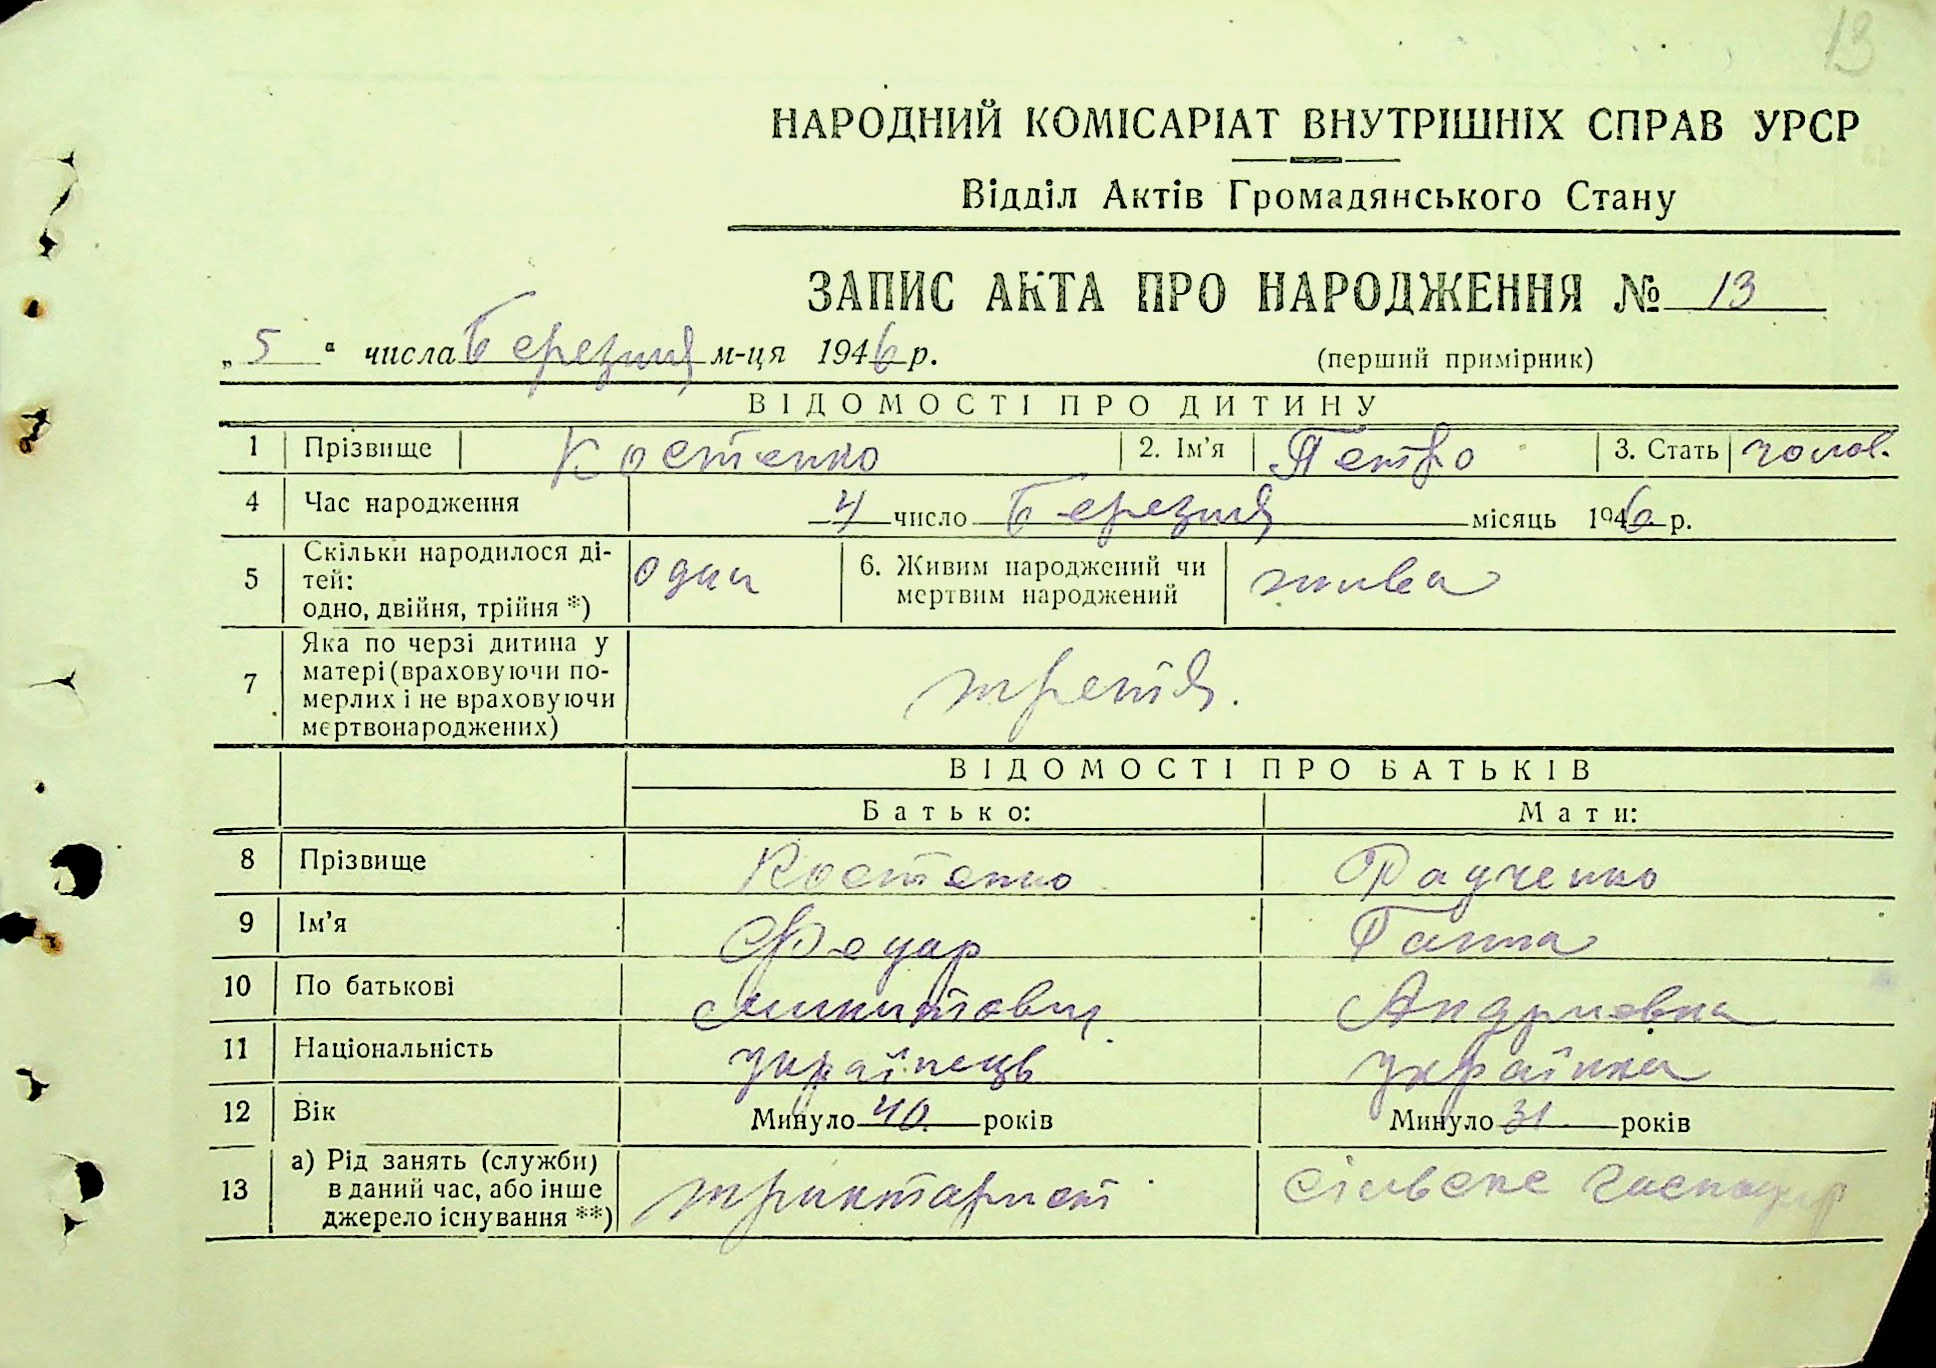 13
НАРОДНИЙ КОМІСАРІАТ ВНУТРІШНІХ СПРАВ УРСР
Відділ Актів Громадянського Стану
ЗАПИС АКТА ПРО НАРОДЖЕННЯ № 13
„5“ числа Березня м-ця 1946 р. (перший примірник)
ВІДОМОСТІ ПРО ДИТИНУ
1 Прізвище Костенко 2. Ім’я Петро 3. Стать чолов.
4 Час народження 4 число Березня місяць 1946 р.
5 Скільки народилося ді-
тей:
одно, двійня, трійня *) одна 6. Живим народжений чи
мертвим народжений жива
7 Яка по черзі дитина у
матері (враховуючи по-
мерлих і не враховуючи
мертвонароджених) третя.
ВІДОМОСТІ ПРО БАТЬКІВ
Батько: Мати:
8 Прізвище Костенко Радченко
9 Ім’я Федар Ганна
10 По батькові Микитович Андриевна
11 Національність українець українка
12 Вік Минуло 40 років Минуло 31 років
13 а) Рід занять (служби)
в даний час, або інше
джерело існування **) сільське